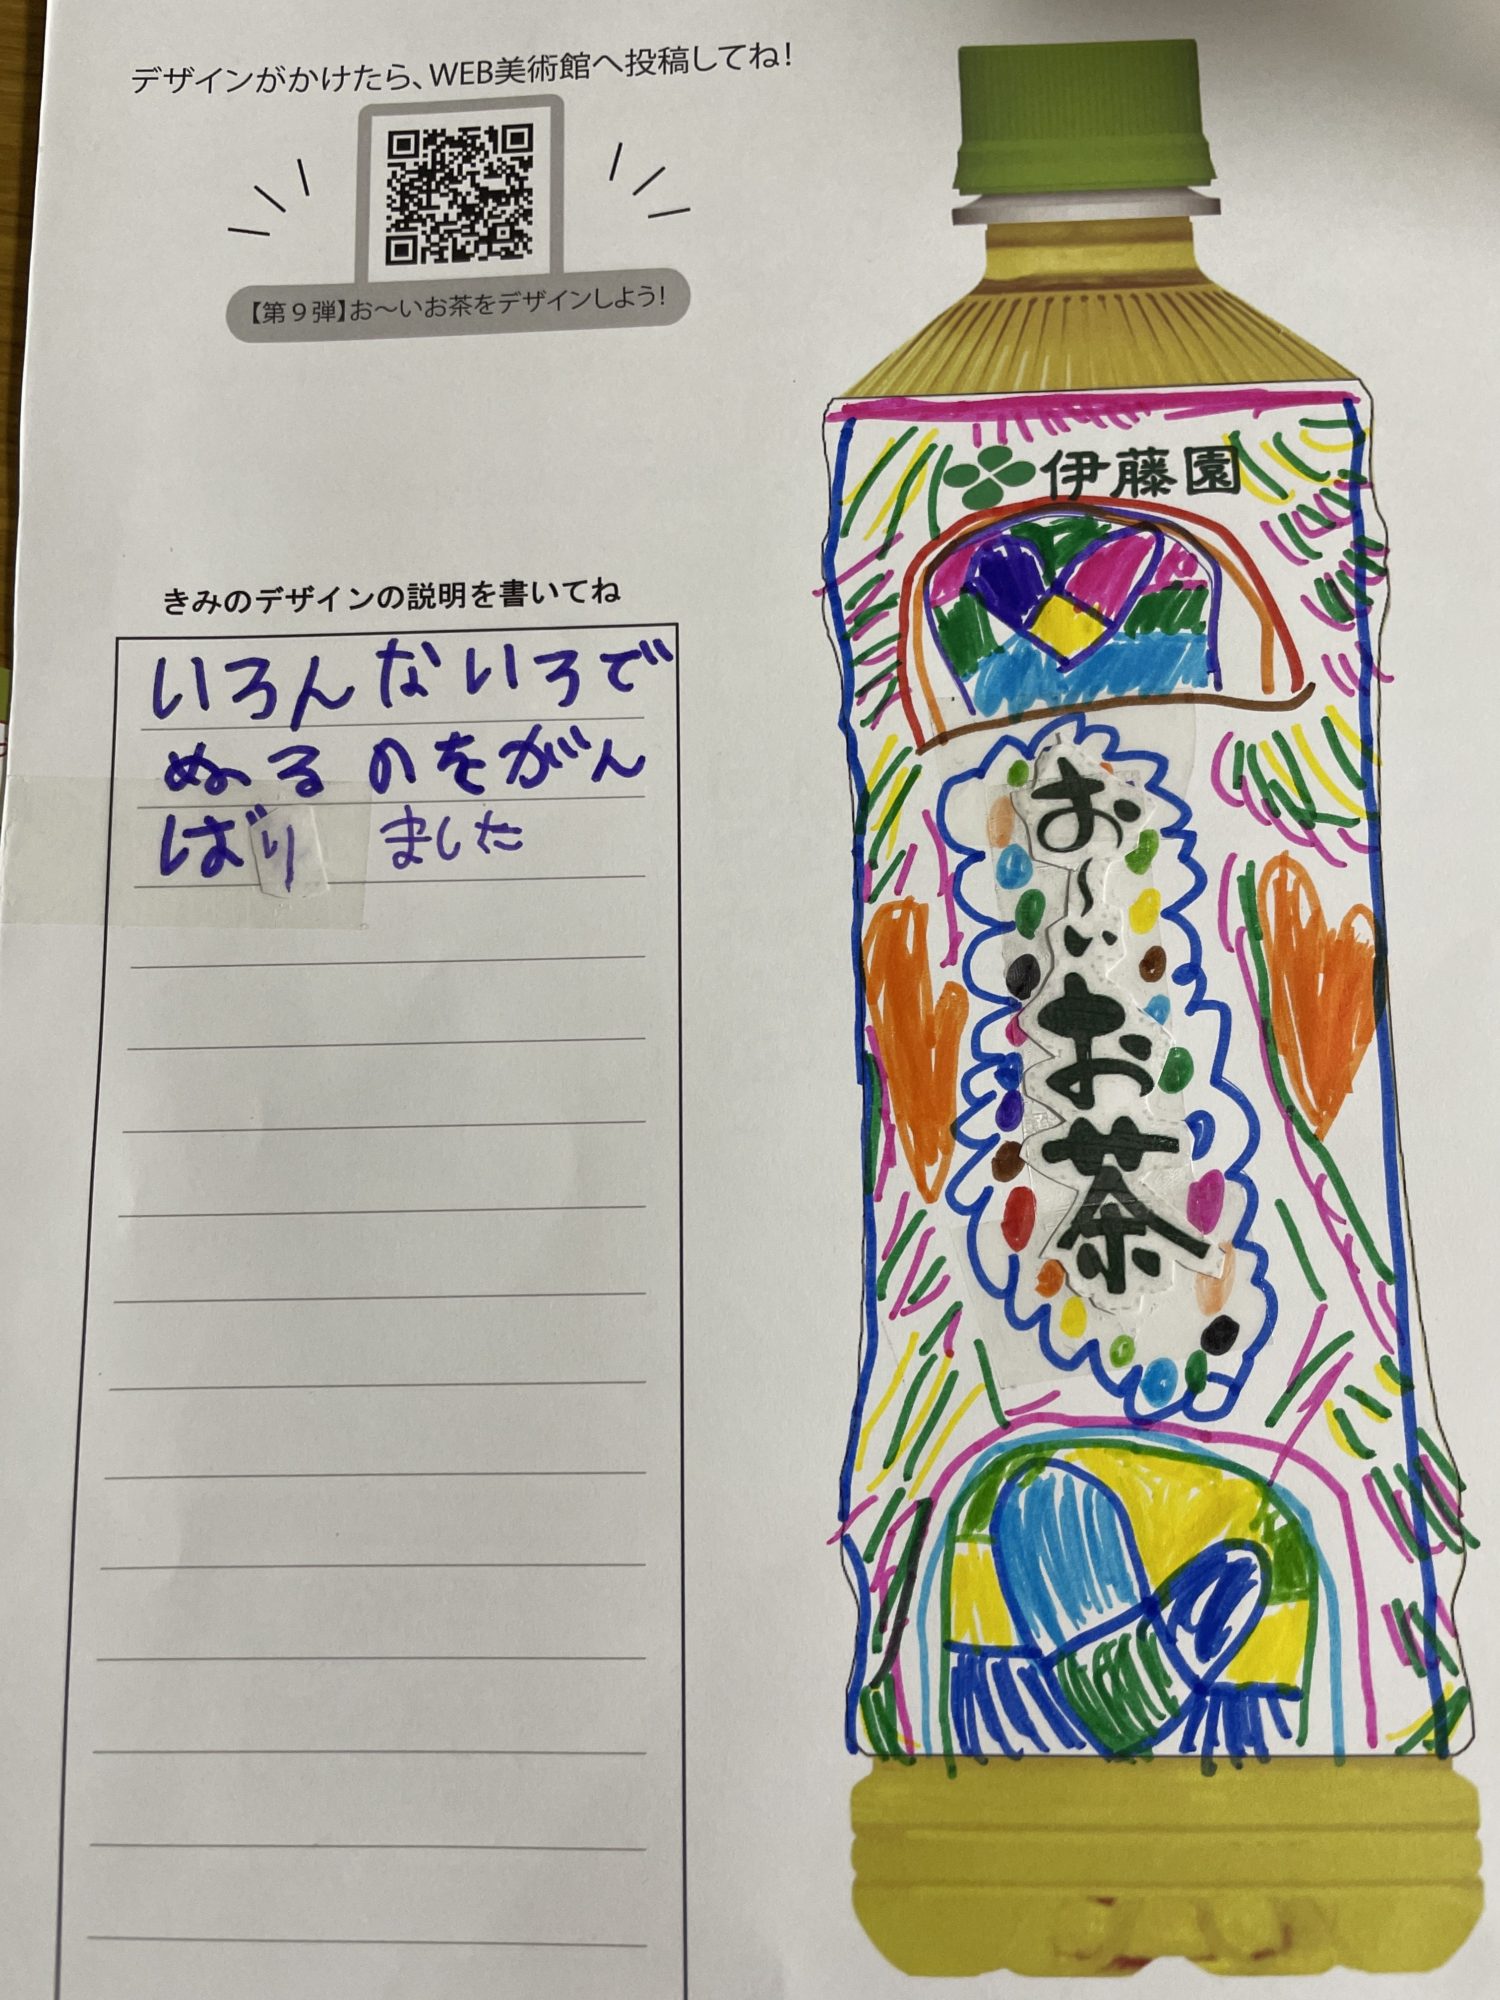 デザインがかけたら、WEB美術館へ投稿してね!
【第9弾】お～いお茶をデザインしよう!
きみのデザインの説明を書いてね
いろんないろで
ぬるのをがん
ばりました
伊藤園
お～いお茶